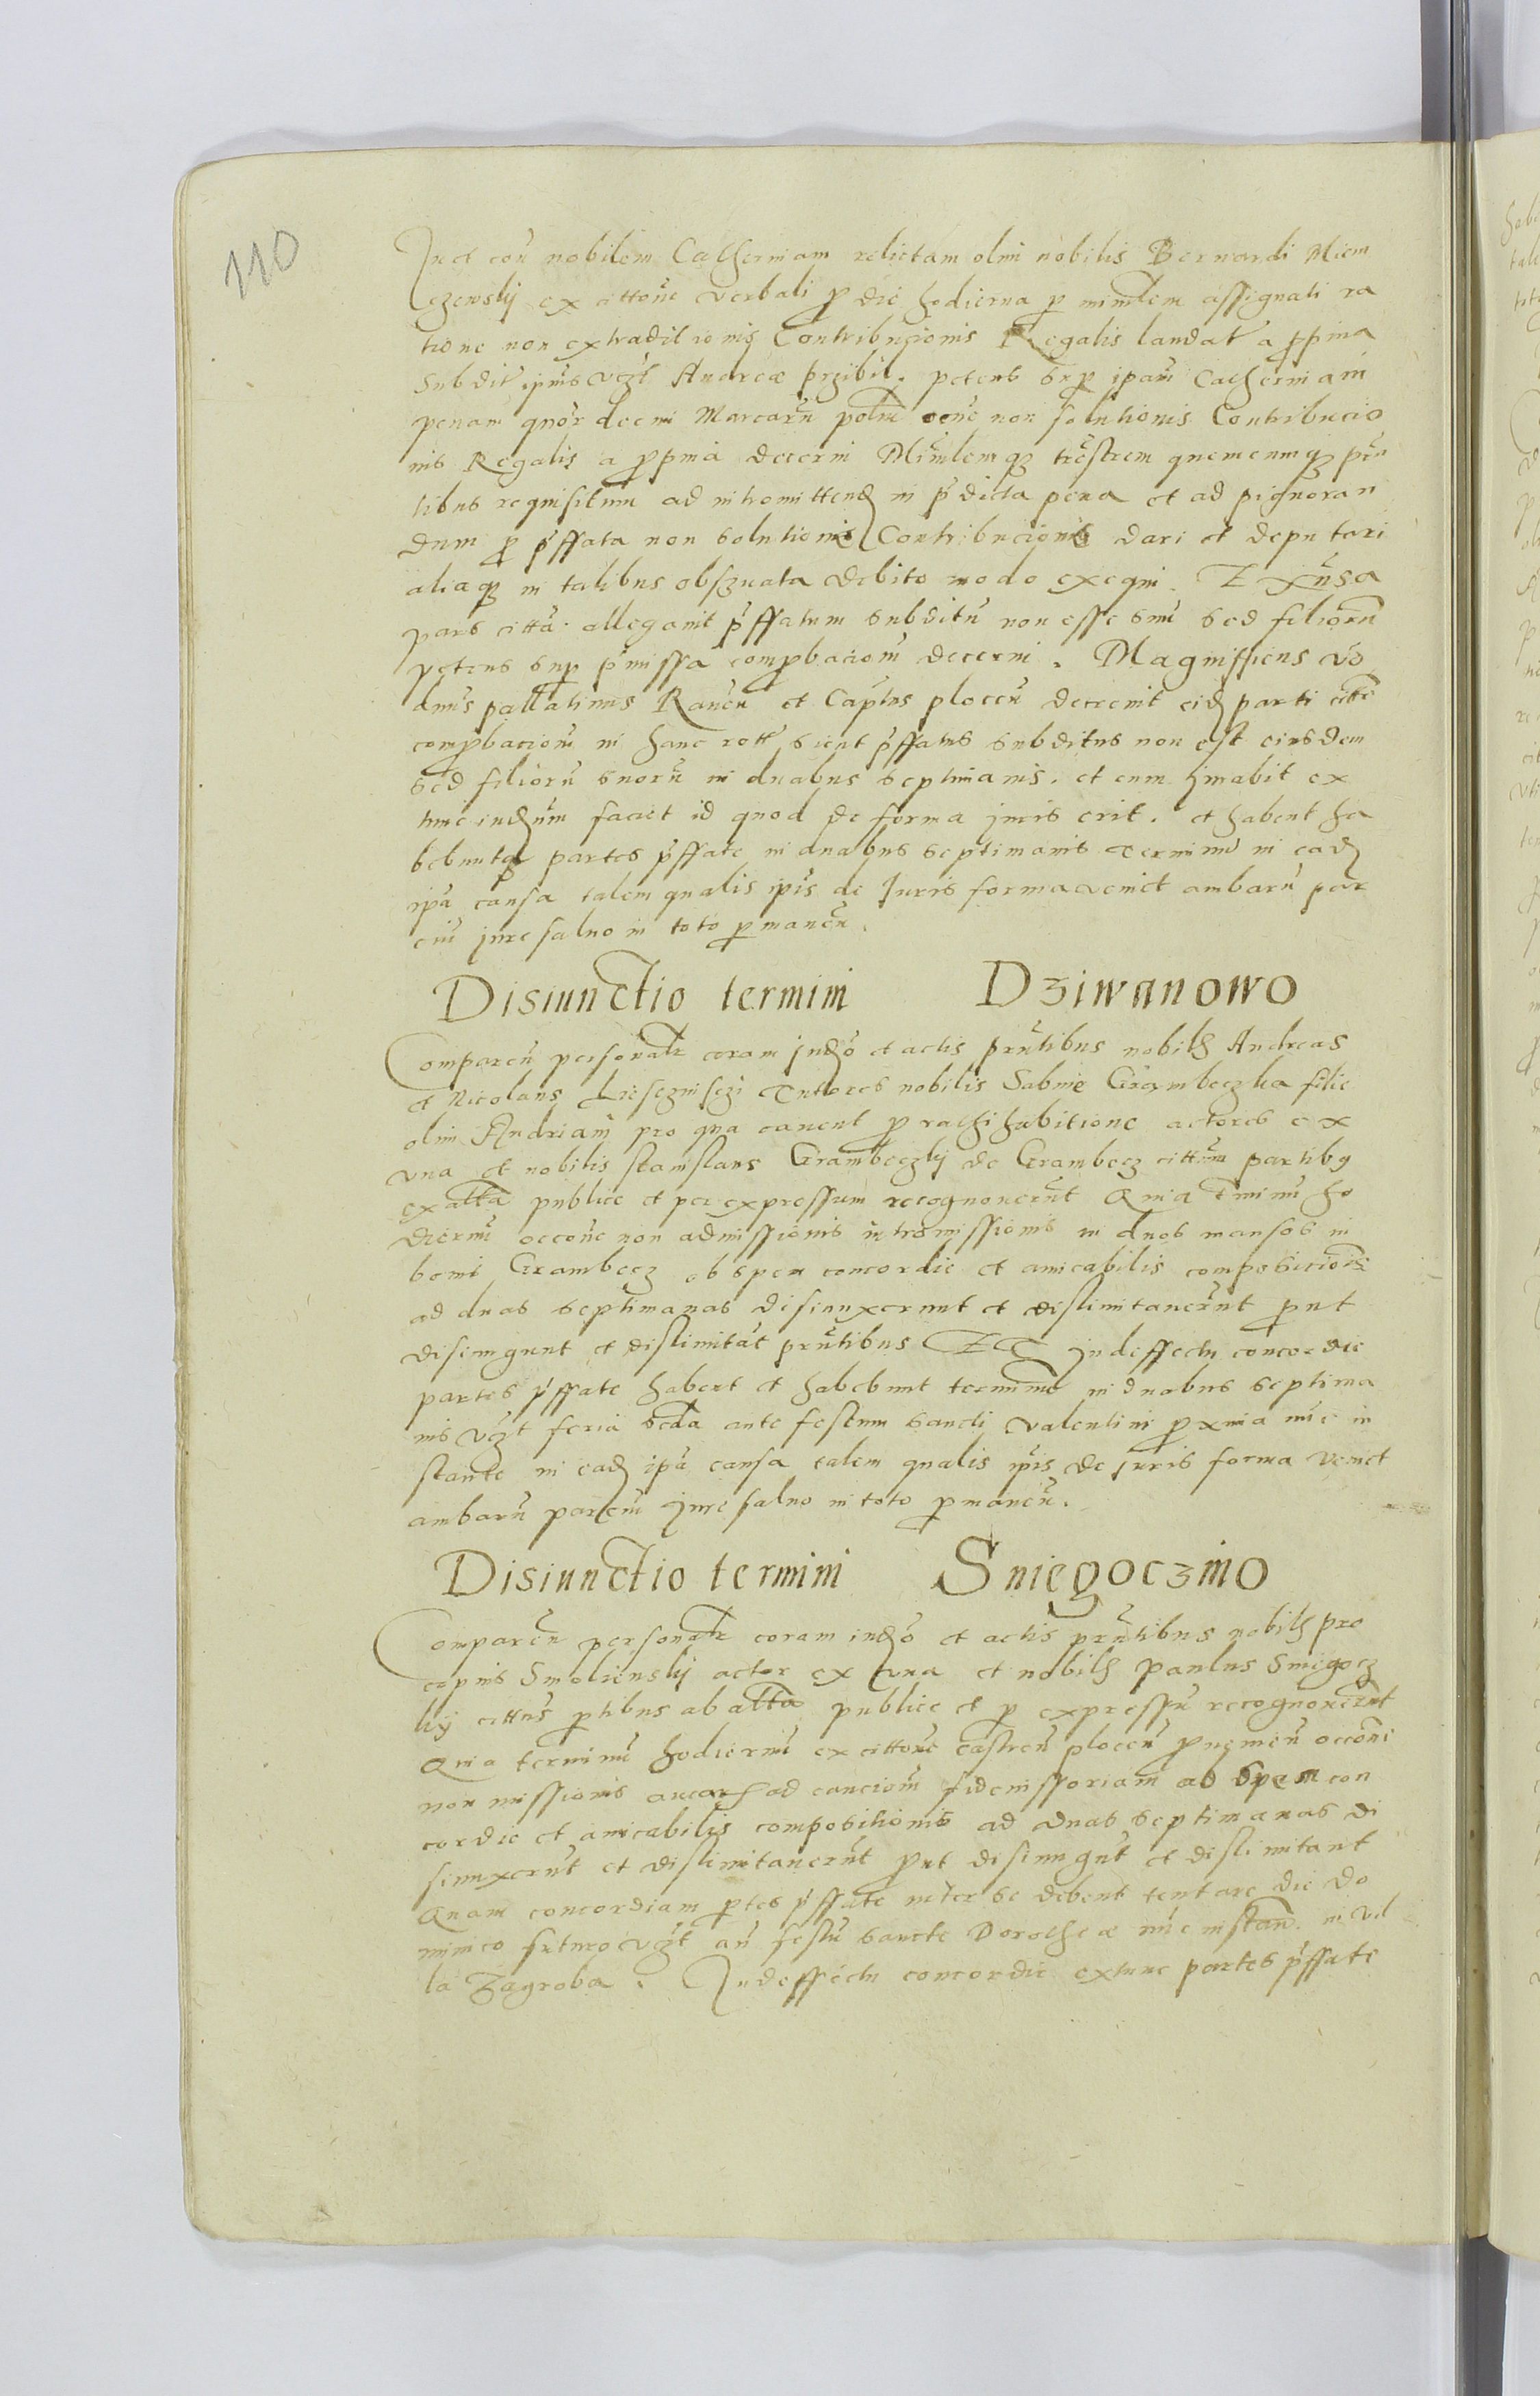 110
Iuct con nobilem Catherinam relictam olim nobilis Bernardi Miem
czewskij ex cittone verbali p die hodierna p minlem assignati ra
tione non extraditionis Contribucionis Regalis laudat a ppina
Subdit ipius vczt Andreæ przibil. petens sup ipam Catherinam
penam quor decim Marcaru polm occne non solutionis Contribucio
nis Regalis a ppina decerni Minlemq trestrem quemcunq pren
tibus requisitum ad intromittend in pdicta pena et ad pignoran
dum p pffata non solutionis Contribucionis dari et deputari
aliaq in talibus obseruata debito modo exequi. Et
pars citta allegauit pffatum subditu non esse suu sed filioru
petens sup pmissa compbacionu decerni. Magnifficus vo
dnus pallatinus Rauen et Captus plocen decreuit eid parti citte
compbacionu in hanc rott sicut pffatus subditus non est eiusdem
sed filioru suoru in duabus septimanis. et cum jurabit ex
tunc iudium faciet id quod de forma juris erit. et habent ha
bebuntq partes pffate in duabus septimanis terminu in ead
ipa causa talem qualis ipis de Juris forma veniet ambaru par
ciu jure saluo in toto pmanen.
Disiunctio termini Dziwanowo
Comparen personatr coram judo et actis prntibus nobils Andreas
et Nicolaus tutores nobilis Sabine Grambeczka filie
olim Andriam pro qua cauent p rathihabitione actores ex
vna et nobilis stanislaus Grambeczkij de Grambecz cittum partibq
ex atta publice et per expressum recognouerunt Quia tminu ho
diernu occone non admissionis intromissionis in duos mansos in
bonis Grambecz ob spem concordie et amicabilis composicionis
ad duas septimanas disiunxerunt et dislimitauerunt put
disiungunt et dislimitat prntibus Et In deffectu concordie
partes pffate habent et habebunt terminu in duabus septima
nis vczt feria scda ante festum sancti valentini pxima nuc in
stante in ead ipa causa talem qualis ipis de juris forma veniet
ambaru parciu jure saluo in toto pmanen.
Disiunctio termini Sniegoczino
Comparen personatr coram iudo et actis prntibus nobils pro
copius Smolienskij actor ex vna et nobils paulus Snigocz
kij cittus ptibus ab atta publice et p expressu recognouerunt
Quia terminu hodiernu ex cittone castren plocen pueniren occone
non missionis ad caucionu fideiussoriam ad spem con
cordie et amicabilis compositionis ad duas septimanas di
siunxerut et dislimitauerunt put disiungut et dislimitant
Quam concordiam ptes pffate inter se debent tentare die do
minico futuro vczt an festu sancte Dorotheæ nuc instan. in vil
la Zagroba. In deffectu concordie extunc partes pffate